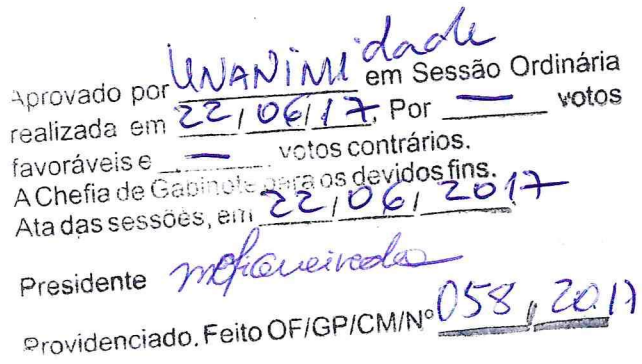 Aprovado por UNANIMIdade em Sessão Ordinária
realizada em 22/06/17. Por — votos
favoráveis e — votos contrários.
A Chefia de Gabinete para os devidos fins.
Ata das sessões, em 22/06/2017
Presidente
Providenciado. Feito OF/GP/CM/Nº 058, 2017